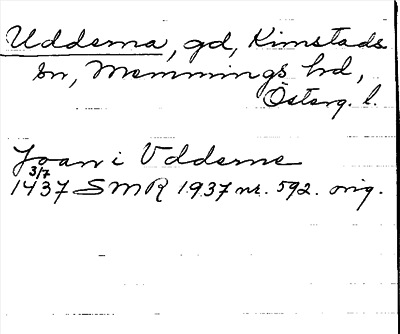 Uddema, gd, Kimstads
sn, Memmings hd,
Österg. l.
Joan i Vddeme
3/7
1437 SMR 1937 nr. 592. orig.